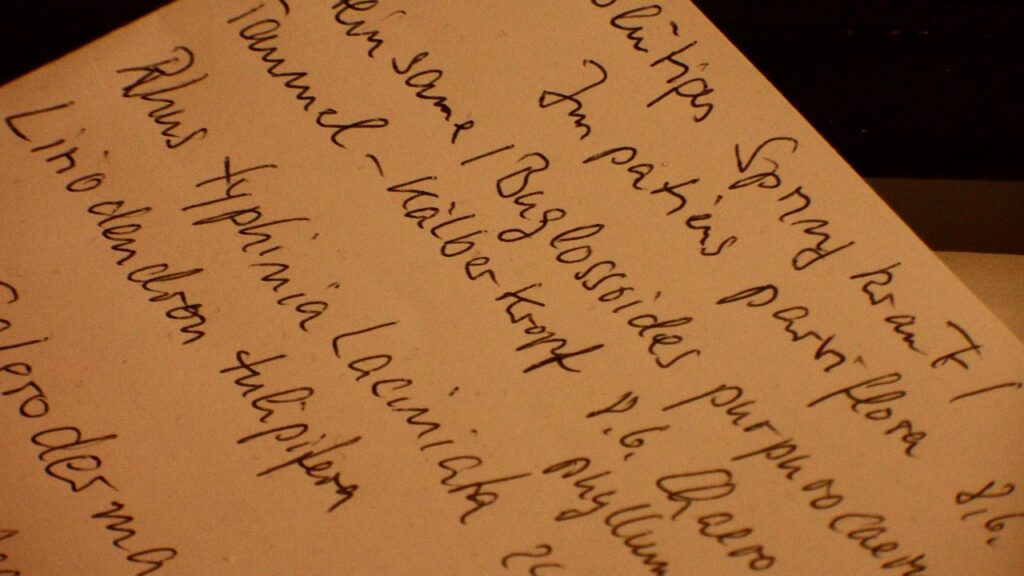 Springkraut /
Impatiens parviflora 8.6.
same / Buglossoides purpurocaeru
Taumel-Kälberkropf 8.6. Chaero
phyllum
Rhus typhinia Laciniata
Liriodendron tulipifera
Scleroderma